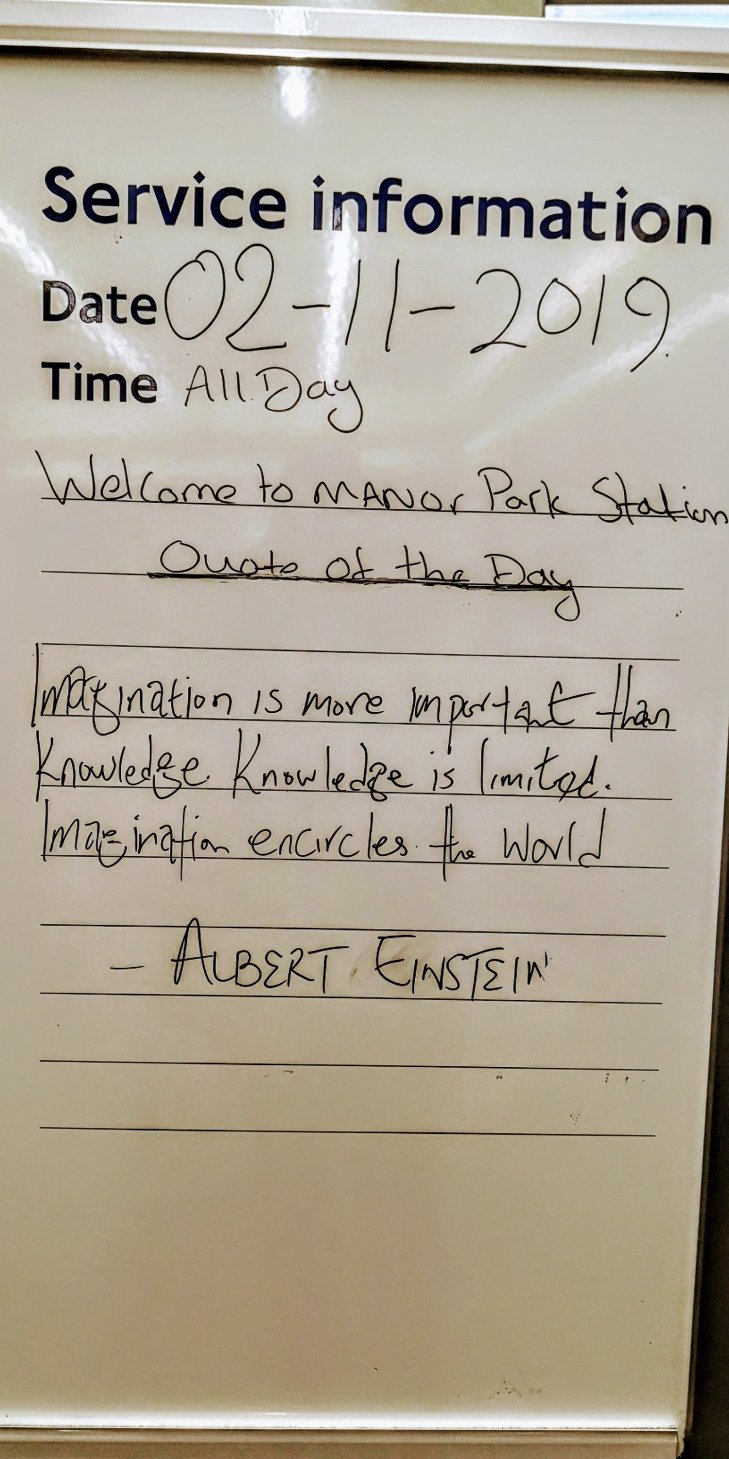 Service information
Date 02-11-2019
Time All Day
Welcome to MANOr Park Station
Quote of the Day
Imagination is more important than
Knowledge. Knowledge is limited.
Imagination encircles the World
- ALBERT EINSTEIN